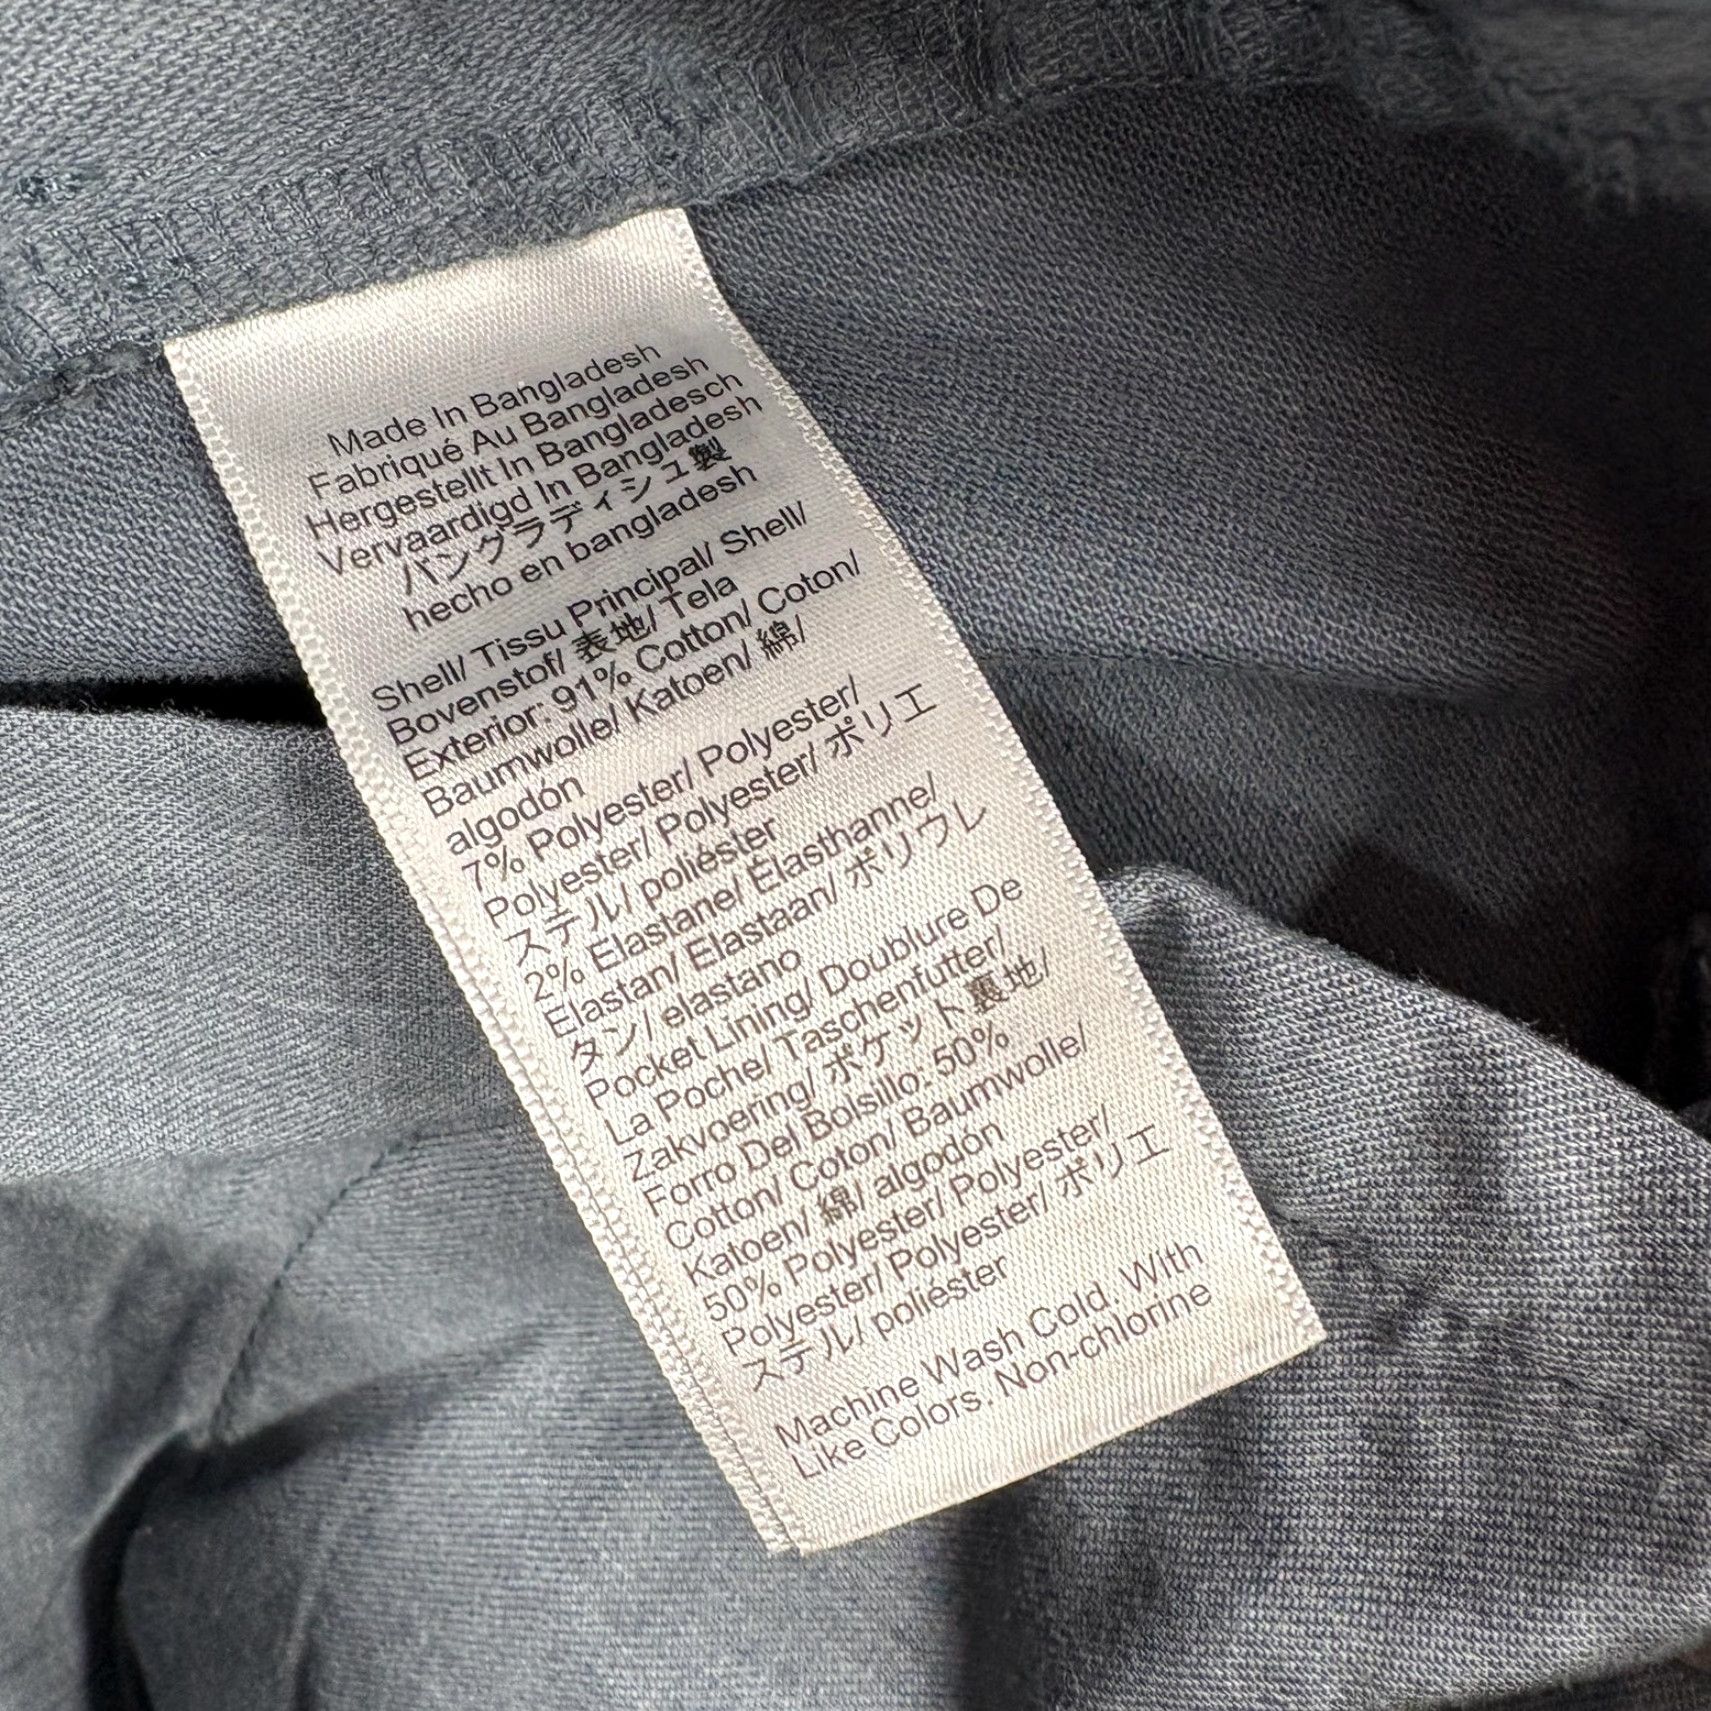 Made In Bangladesh
Fabriqué Au Bangladesh
Hergestellt In Bangladesch
Vervaardigd In Bangladesh
バングラディシュ製
hecho en bangladesh
Shell/ Tissu Principal/ Shell/
Bovenstof/ 表地/ Tela
Exterior: 91% Cotton/ Coton/
Baumwolle/ Katoen/ 綿/
algodón
7% Polyester/ Polyester/
Polyester/ Polyester/ ポリエ
ステル/ poliéster
2% Elastane/ Élasthanne/
Elastan/ Elastaan/ ポリウレ
タン/ elastano
Pocket Lining/ Doublure De
La Poche/ Taschenfutter/
Zakvoering/ ポケット裏地/
Forro Del Bolsillo: 50%
Cotton/ Coton/ Baumwolle/
Katoen/ 綿/ algodón
50% Polyester/ Polyester/
Polyester/ Polyester/ ポリエ
ステル/ poliéster
Machine Wash Cold. With
Like Colors. Non-chlorine